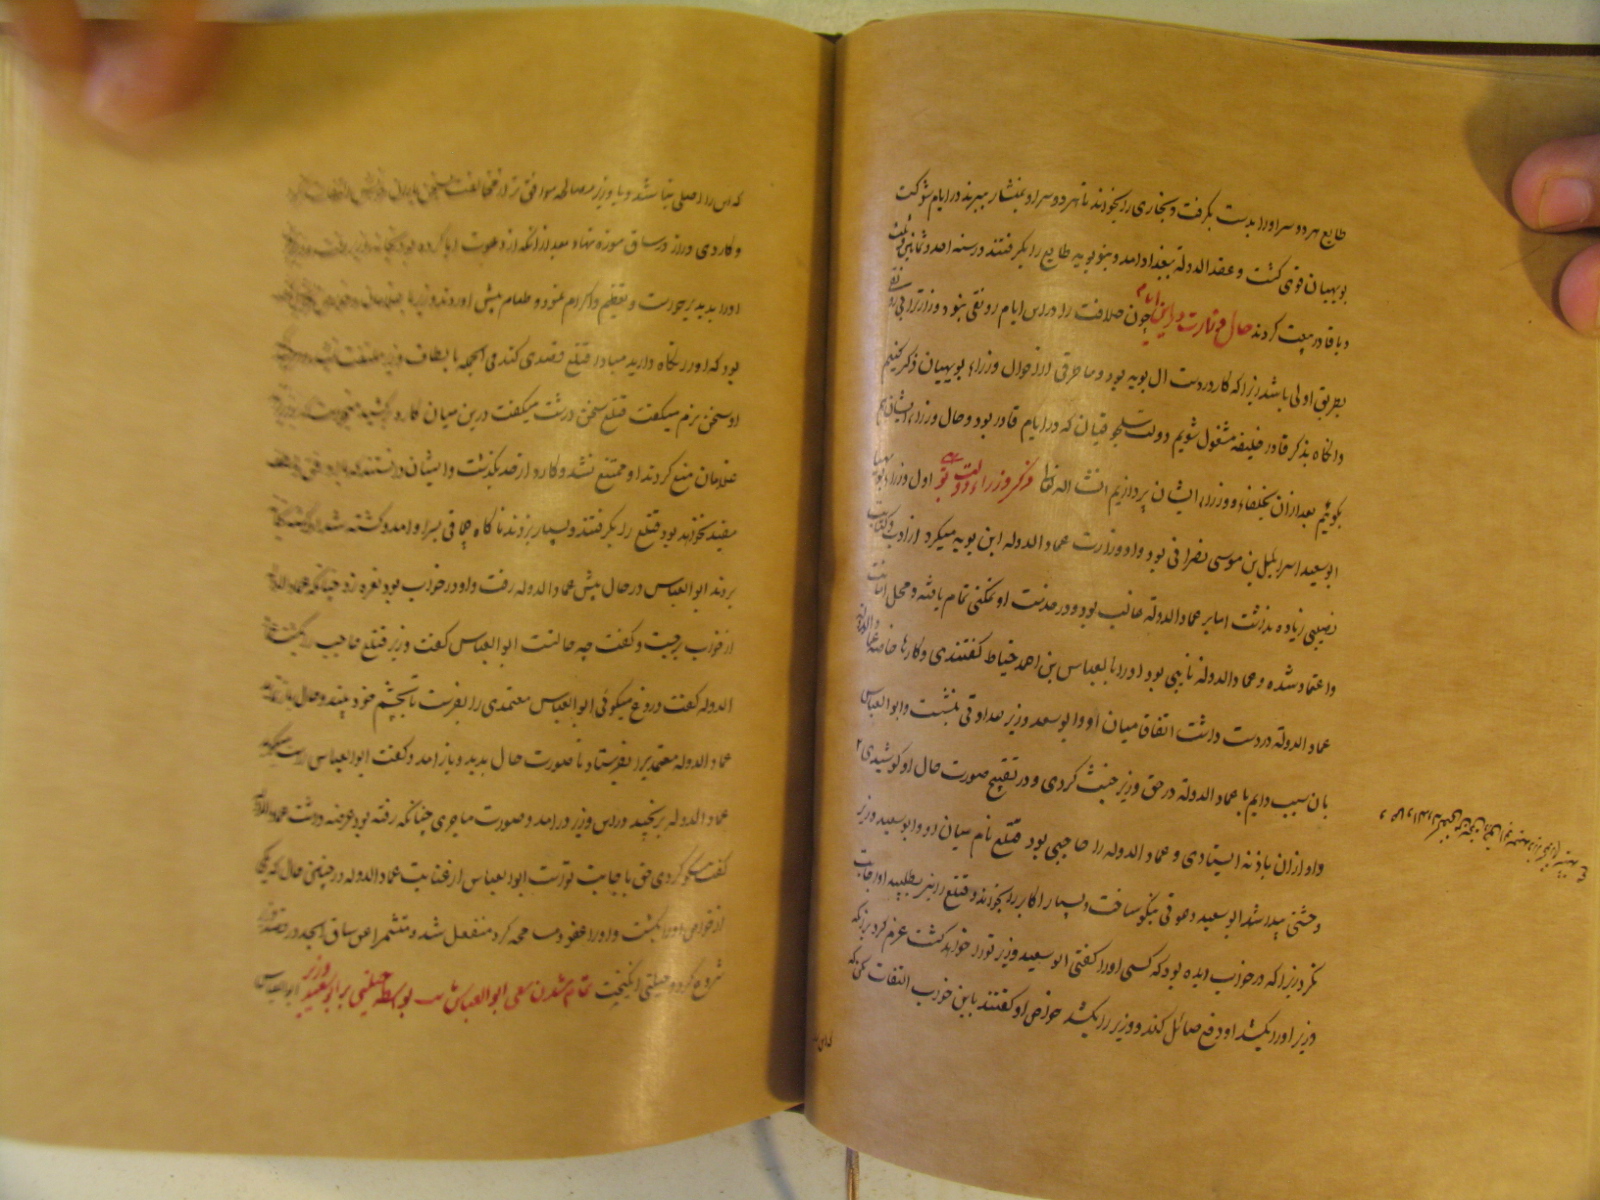 طایع هر دو سر او را بدست بگرفت و نجاری را بخواند تا هر دو سر او بمنشار ببرند در ایام شوکت
بویهیان قوی گشت و عضد الدوله ببغداد امد و بنو بویه طایع را بگرفتند در سنه احد و ثمانین و ثلث
و با قادر بیعت کردند حال وزارت در این ایام چون خلافت را در این ایام رونقی نبود وزارت را
بطریق اولی باشد زیرا که کار در دست ال بویه بود و ما طرفی از احوال وزراء بویهیان ذکر کنیم
و انگاه بذکر قادر خلیفه مشغول شویم دولت سلجوقیان که در ایام قادر بود و حال وزراء ایشان هم
بگوئیم بعد ازان بخلفاء و وزراء ایشان پردازیم انشا الله تعالی ذکر وزراء دولت اول وزراء
ابو سعید اسرائیل بن موسی نصرانی بود و او وزارت عماد الدوله ابن بویه میکرد از ادب و کتابت
نصیبی زیاده نداشت اما بر عماد الدوله غالب بود و در خدمت او تمکنی تمام یافته و محل امانت
و اعتماد شده و عماد الدوله نایبی بود او را ابو العباس بن احمد خیاط گفتندی و کارها خاصه
عماد الدوله در دست داشت اتفاقا میان او و ابو سعید وزیر عداوتی بنشست و ابو العباس
بان سبب دایم با عماد الدوله در حق وزیر خبث کردی و در تقبیح صورت حال او کوشیدی
و او ازان باز نه ایستادی و عماد الدوله را حاجبی بود قتلغ نام میان او و ابو سعید وزیر
وحشتی پیدا شد ابو سعید دعوتی نیکو ساخت و بسیار اکابر را بخواند و قتلغ را نیز بطلبید اجابت
نکرد زیرا که در خواب دیده بود که کسی او را گفتی ابو سعید وزیر ترا خواهد کشت عزم کرد بر انکه
وزیر او را بکشد او دفع صائل کند و وزیر را بکشد خواص او گفتند باین خواب التفات مکن که
که این را اصلی نباشد و با وزیر مصالحه موافق تر از مخالفت
و کاردی دراز در ساق موزه نهاد بعد از انکه از دعوت ابا کرده بود
او را بدید برخاست و تعظیم و اکرام نمود و طعام پیش اوردند وزیر با
بود که او را نگاه دارید مبادا قتلغ قصدی کند فی الجمله با لطاف وزیر
او سخن نرم میگفت قتلغ سخن درشت میگفت درین میان کارد بر کشید
غلامان منع کردند او ممتنع نشد و کار از حد بگذشت و ایشان دانستند که
مفید نخواهد بود قتلغ را بگرفتند و بسیار بزدند ناگاه چماقی بسر او امد و کشته شد
بردند ابو العباس در حال پیش عماد الدوله رفت و او در خواب بود نعره زد چنانکه عماد الدوله
از خواب برجست و گفت چه حالتست ابو العباس گفت وزیر قتلغ حاجب را بکشت
الدوله گفت دروغ میگوئی ابو العباس معتمدی را بفرست تا بچشم خود بیند و حال
عماد الدوله معتمدی را بفرستاد تا صورت حال بدید و باز امد و گفت ابو العباس راست میگوید
عماد الدوله برنجید در این وزیر در امد و صورت ماجری چنانکه رفته بود عرضه داشت عماد الدوله
گفت نیکو کردی حق با جانب تو است ابو العباس از عنایت عماد الدوله در چنین حال که یکی
از خواص او را بکشت و او را عفو و مسامحه کرد منفعل شد و متشمرا عن ساق الجد در
شروع کرد و حیلتی انگیخت تمام شدن سعی ابو العباس نائب بواسطه حیلتی بر ابو سعید وزیر ابو العباس
که این